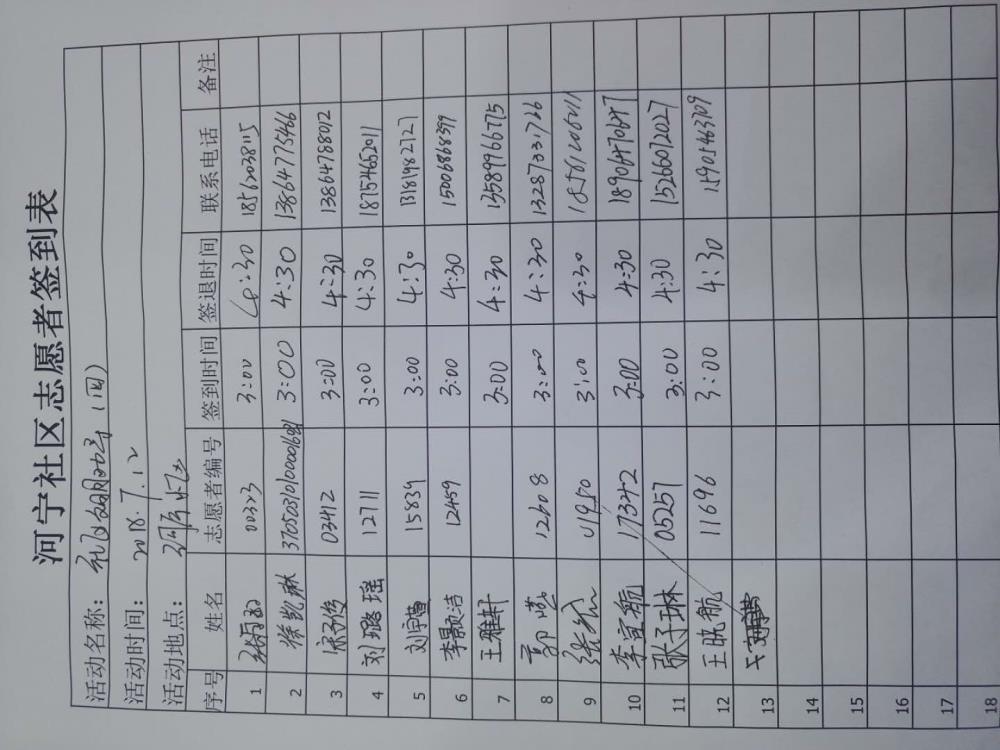 河宁社区志愿者签到表
活动名称：
活动时间： 2018.7.12
活动地点：
序号 姓名 志愿者编号 签到时间 签退时间 联系电话 备注
1 00323 3:00 :30 18562038115
2 徐凯琳 3:00 4:30 13864775466
3 03412 3:00 4:30 13864788012
4 刘璐瑶 12711 3:00 4:30 18754662011
5 刘宇萱 15839 3:00 4:30 13181982727
6 李颢洁 12459 3:00 4:30 15006868399
7 王雅轩 3:00 4:30 13589966775
8 郭 12608 3:00 4:30 13287331766
9 张 3:00 4:30
10 李宜航 17342 3:00 4:30 18906470647
11 张子琳 05257 3:00 4:30 15266072027
12 王晓航 11696 3:00 4:30 15905463709
13
14
15
16
17
18